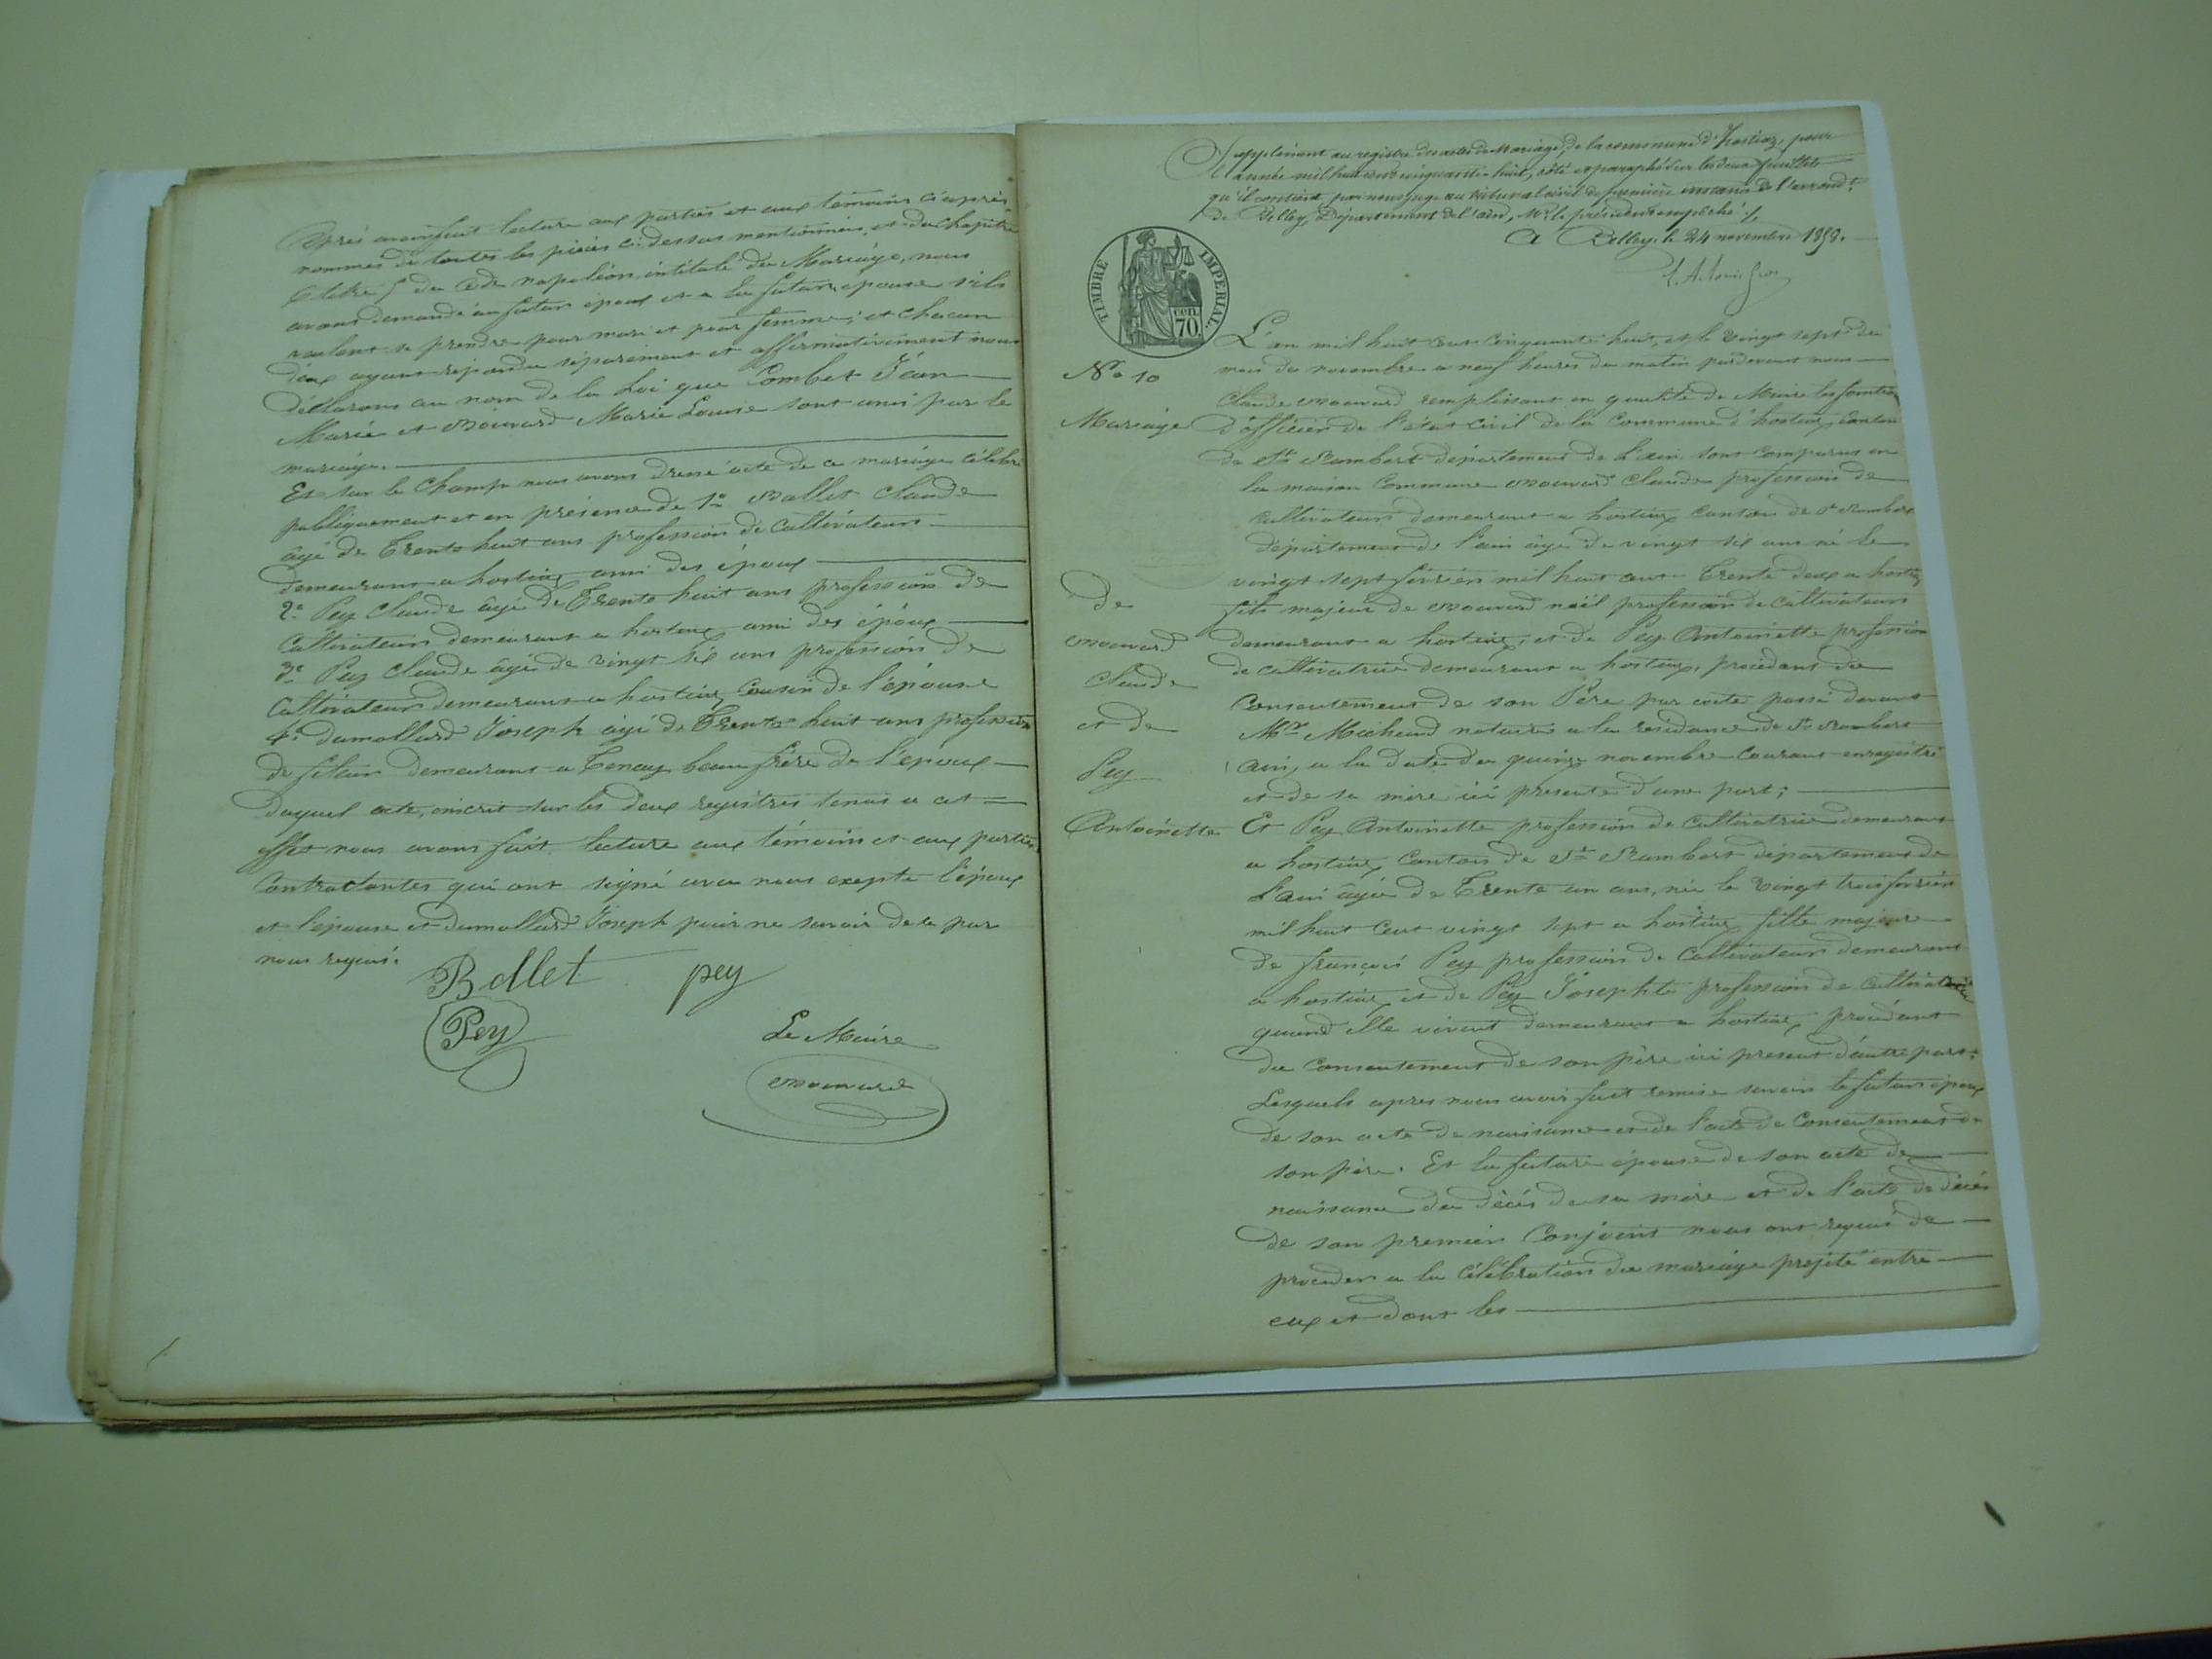 Après avoir fait lecture aux parties et aux témoins ci après
nommés de toutes les pièces ci dessus mentionnées, et du chapitre
6 titre 5 du Code napoléon intitulé du Mariage, nous
avons demandé au futur époux et a la future épouse s'ils
veulent se prendre pour mari et pour femme; et chacun
d'eux ayant répondu séparément et affirmativement nous
déclarons au nom de la Loi que Combet Jean
Marie et Bouvard Marie Louise sont unis par le
mariage.
Et sur le Champ nous avons dressé acte de ce mariage célébré
publiquement et en présence de 1° Ballet Claude
âgé de Trente huit ans profession de Cultivateur
demeurant a hostiaz ami des époux
2° Pey Claude âgé de Trente huit ans profession de
Cultivateur demeurant a hostiaz ami des époux
3° Pey Claude âgé de vingt six ans profession de
Cultivateur demeurant a hostiaz Cousin de l'épouse
4° dumollard Joseph âgé de Trente huit ans profession
de fileur demeurant a Tenay beau frère de l'époux
duquel acte, inscrit sur les deux registres tenus a cet
effet nous avons fait lecture aux témoins et aux parties
Contractantes qui ont signé avec nous excepte l'époux
et l'épouse et dumollard Joseph pour ne savoir de ce par
nous requis.
Ballet pey
Pey
Le Maire
Bouvard
Supplément au registre des actes de Mariage, de la commune d'hostiaz, pour
l'année mil huit cent cinquante huit, côté et paraphé sur les deux feuillets
qu'il contient, par nous juge au tribunal civil de première instance de l'arrond.t
de Belley, Département de l'ain, Mr le président empêché ./.
A Belley, le 24 novembre 1858.
TIMBRE IMPERIAL
70
L'an mil huit cent Cinquante huit, et le vingt sept du
No 10
mois de novembre a neuf heures du matin pardevant nous
Claude Bouvard remplissant en qualité de Maire les fonctions
Mariage
d'officier de l'état Civil de la Commune d'hostiaz, Canton
de St Rambert département de L'ain sont comparus en
la maison Commune Bouvard Claude profession de
Cultivateur demeurant a hostiaz Canton de St Rambert
département de l'ain âgé de vingt six ans né le
vingt sept février mil huit cent Trente deux a hostiaz
de
fils majeur de Bouvard noël profession de Cultivateur
Bouvard
demeurant a hostiaz, et de Pey Antoinette profession
Claude
de cultivatrice demeurant a hostiaz, procédant du
et de
Consentement de son Père par acte passé devant
Mre Micheud notaire a la résidence de St Rambert
Pey
ain, a la date du quinze novembre Courant enregistré
et de sa mère ici presente d'une part;
Antoinette
Et Pey Antoinette profession de Cultivatrice demeurant
a hostiaz Canton de St Rambert département de
L'ain âgée de Trente un ans, née le vingt trois février
mil huit Cent vingt sept a hostiaz fille majeure
de françois Pey profession de Cultivateur demeurant
a hostiaz et de Pey Josephte profession de Cultivatrice
quand elle vivait demeurant a hostiaz, procédant
du Consentement de son père ici present d'autre part.
Lesquels apres nous avoir fait remise savoir le futur époux
de son acte de naissance et de l'acte de Consentement de
son père. Et la future épouse de son acte de
naissance du décés de sa mère et de l'acte de décés
de son premier Conjoint nous ont requis de
proceder a la Célébration du mariage projeté entre
eux et dont les